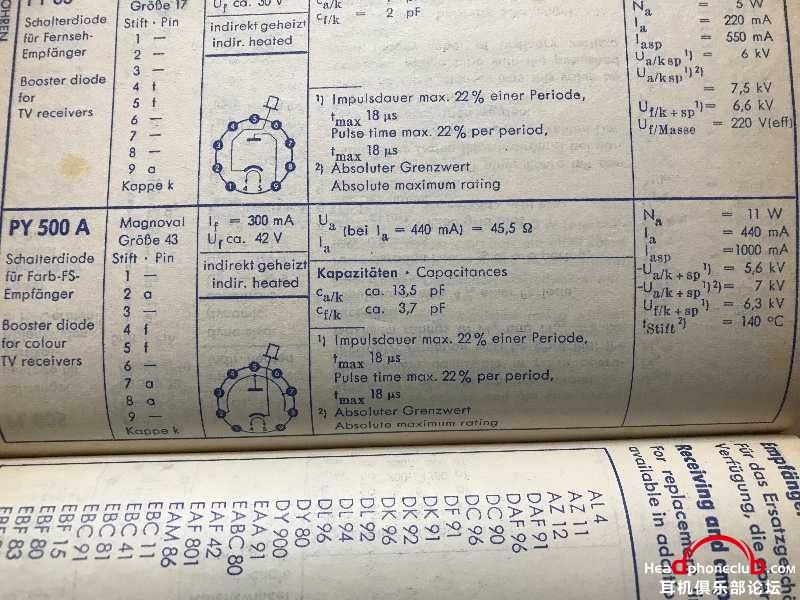 Größe 17
Schalterdiode
für Fernseh-
Empfänger
Booster diode
for
TV receivers
Stift · Pin
1 —
2 —
3 —
4 f
5 f
6 —
7 —
8 —
9 a
Kappe k
Uf ca. 30 V
indirekt geheizt
indir. heated
ca/k
cf/k = 2 pF
1) Impulsdauer max. 22% einer Periode,
tmax 18 µs
Pulse time max. 22% per period,
tmax 18 µs
2) Absoluter Grenzwert
Absolute maximum rating
Na = 5 W
Ia = 220 mA
Iasp = 550 mA
Ua/ksp 1) = 6 kV
Ua/ksp 1) 2)
= 7,5 kV
Uf/k+sp 1) = 6,6 kV
Uf/Masse = 220 V(eff)
PY 500 A
Schalterdiode
für Farb-FS-
Empfänger
Booster diode
for colour
TV receivers
Magnoval
Größe 43
Stift · Pin
1 —
2 a
3 —
4 f
5 f
6 —
7 a
8 a
9 —
Kappe k
If = 300 mA
Uf ca. 42 V
indirekt geheizt
indir. heated
Ua
Ia
(bei Ia = 440 mA) = 45,5 Ω
Kapazitäten · Capacitances
ca/k ca. 13,5 pF
cf/k ca. 3,7 pF
1) Impulsdauer max. 22% einer Periode,
tmax 18 µs
Pulse time max. 22% per period,
tmax 18 µs
2) Absoluter Grenzwert
Absolute maximum rating
Na = 11 W
Ia = 440 mA
Iasp =1000 mA
-Ua/k+sp 1) = 5,6 kV
-Ua/k+sp 1) 2)= 7 kV
Uf/k+sp 1) = 6,3 kV
tStift 2) = 140 °C
Empfänger
Für das Ersatzgeschä
Verfügung, die
Receiving and
For replaceme
available in add
AL 4
AZ 11
AZ 12
DAF 91
DAF 96
DC 90
DC 96
DF 91
DK 91
DK 92
DK 96
DL 92
DL 94
DL 96
DY 80
DY 900
EAA 91
EABC 80
EAF 42
EAF 801
EAM 86
EBC 11
EBC 41
EBC 81
EBC 91
EBF 15
EBF 80
EBF 83
Headphoneclub.com
耳机俱乐部论坛